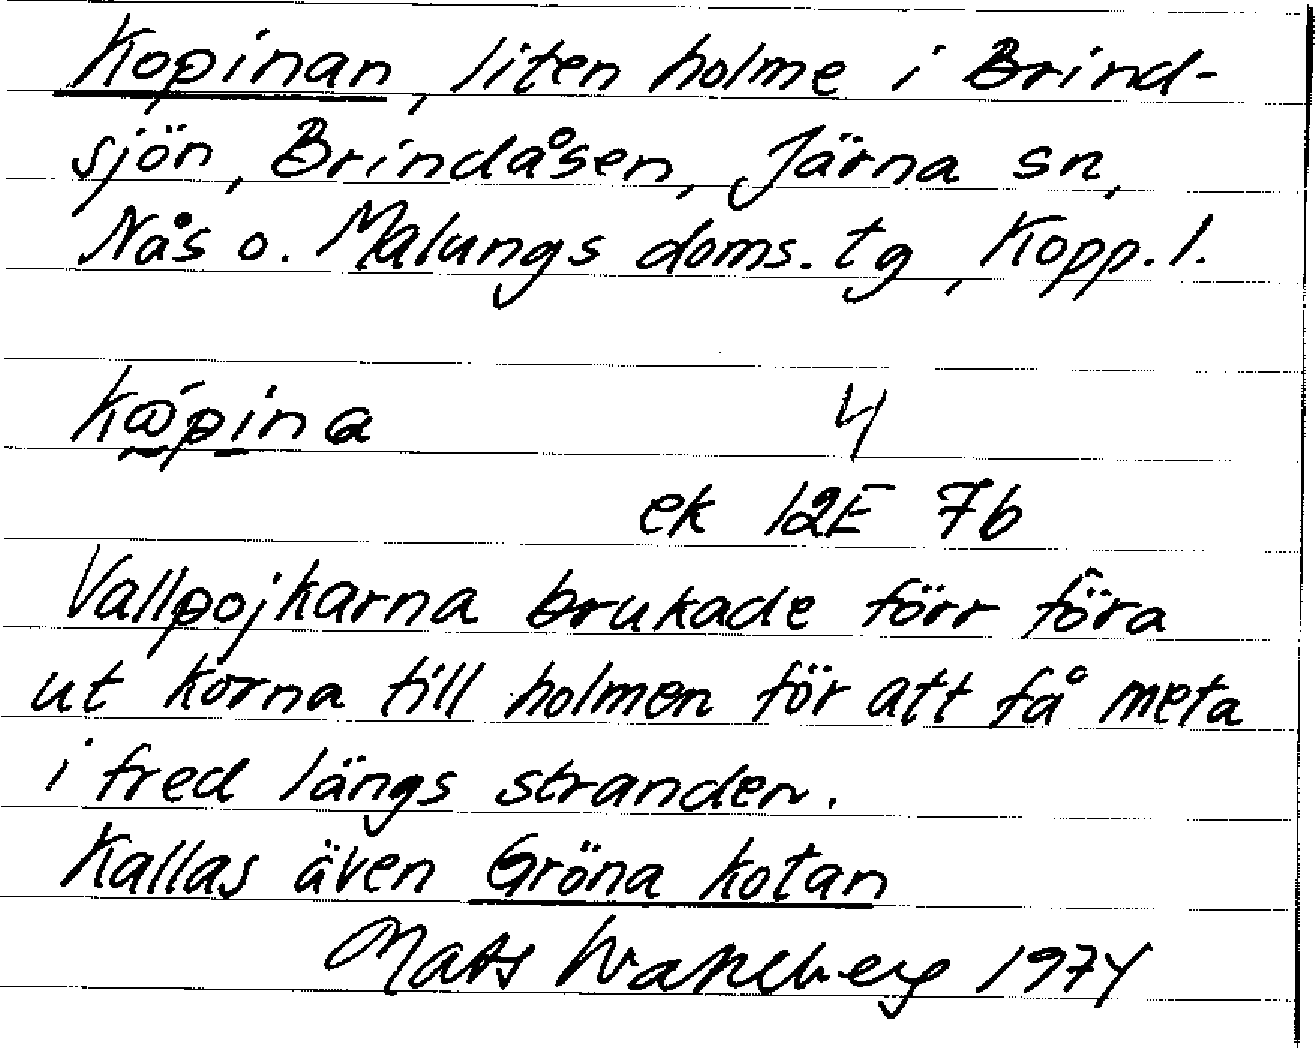 Kopinan, liten holme i Brind-
sjön, Brindåsen, Järna sn,
Nås o. Malungs doms. tg, Kopp. l.
4
ek 12E 7b
Vallpojkarna brukade förr föra
ut korna till holmen för att få meta
i fred längs stranden.
Kallas även Gröna kotan
Mats Wahlberg 1974